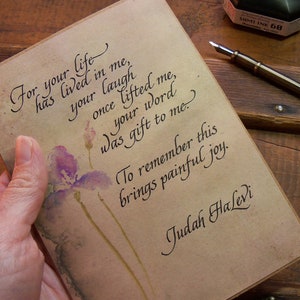 For your life
has lived in me,
your laugh
once lifted me,
your word
was gift to me.
To remember this
brings painful joy.
Judah HaLevi